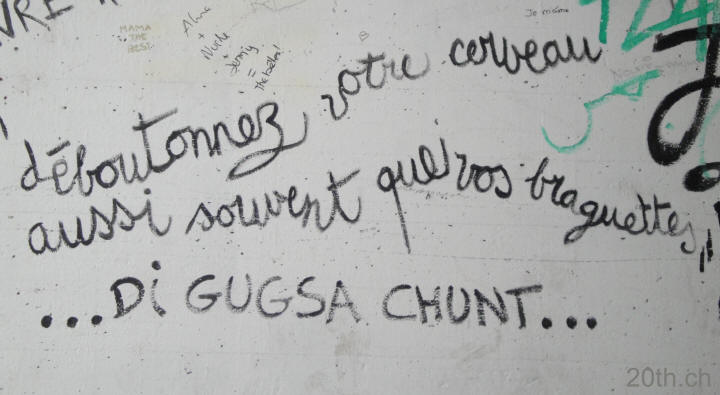 MAMA
THE
BEST
Aline
+
Nicole
+
Jenny
=
the best!
Je m'aime
déboutonnez votre cerveau
aussi souvent que vos braguettes
...Di GUGSA CHUNT...
20th.ch